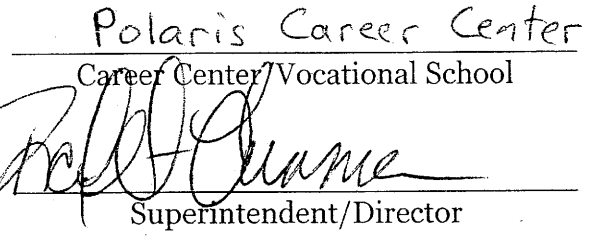 Polaris Career Center
Career Center/Vocational School
Superintendent/Director